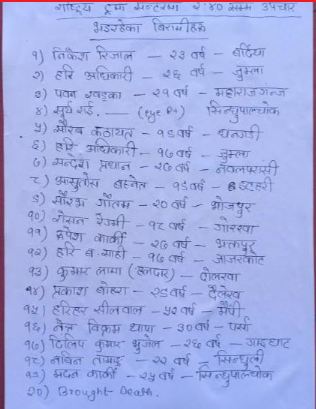 राष्ट्रिय ट्रमा सेन्टरमा २:४० सम्म उपचार
भइरहेका बिरामीहरू
१) निकेश रिजाल – २३ वर्ष – बर्दिया
२) हरि अधिकारी – २६ वर्ष – जुम्ला
३) पवन खड्का – २१ वर्ष – महाराजगन्ज
४) सूर्य राई. – (Eye Pt) सिन्धुपाल्चोक
५) सौरव कठायत – १९ वर्ष – धनगढी
६) हरि अधिकारी – १७ वर्ष – जुम्ला
७) सन्देश प्रधान – २७ वर्ष – नवलपरासी
८) आशुतोस बस्नेत – १९ वर्ष – इटहरी
९) सौरभ गौतम – २० वर्ष – भोजपुर
१०) रोसन रेग्मी – १८ वर्ष – गोरखा
११) कार्की – २७ वर्ष – भक्तपुर
१२) हरि ब. शाही – १७ वर्ष – जाजरकोट
१३) कुमार लामा – दोलखा
१४) प्रकाश बोहरा – २९ वर्ष – दैलेख
१५) हरिहर सीलवाल – ५२ वर्ष –
१६) नेत्र विक्रम थापा – ३० वर्ष – पर्सा
१७) दिलिप कुमार भुजेल – २६ वर्ष –
१८) नविन तामाङ – २२ वर्ष – सिन्धुली
१९) मदन कार्की – २५ वर्ष – सिन्धुपाल्चोक
२०) Brought-Death.